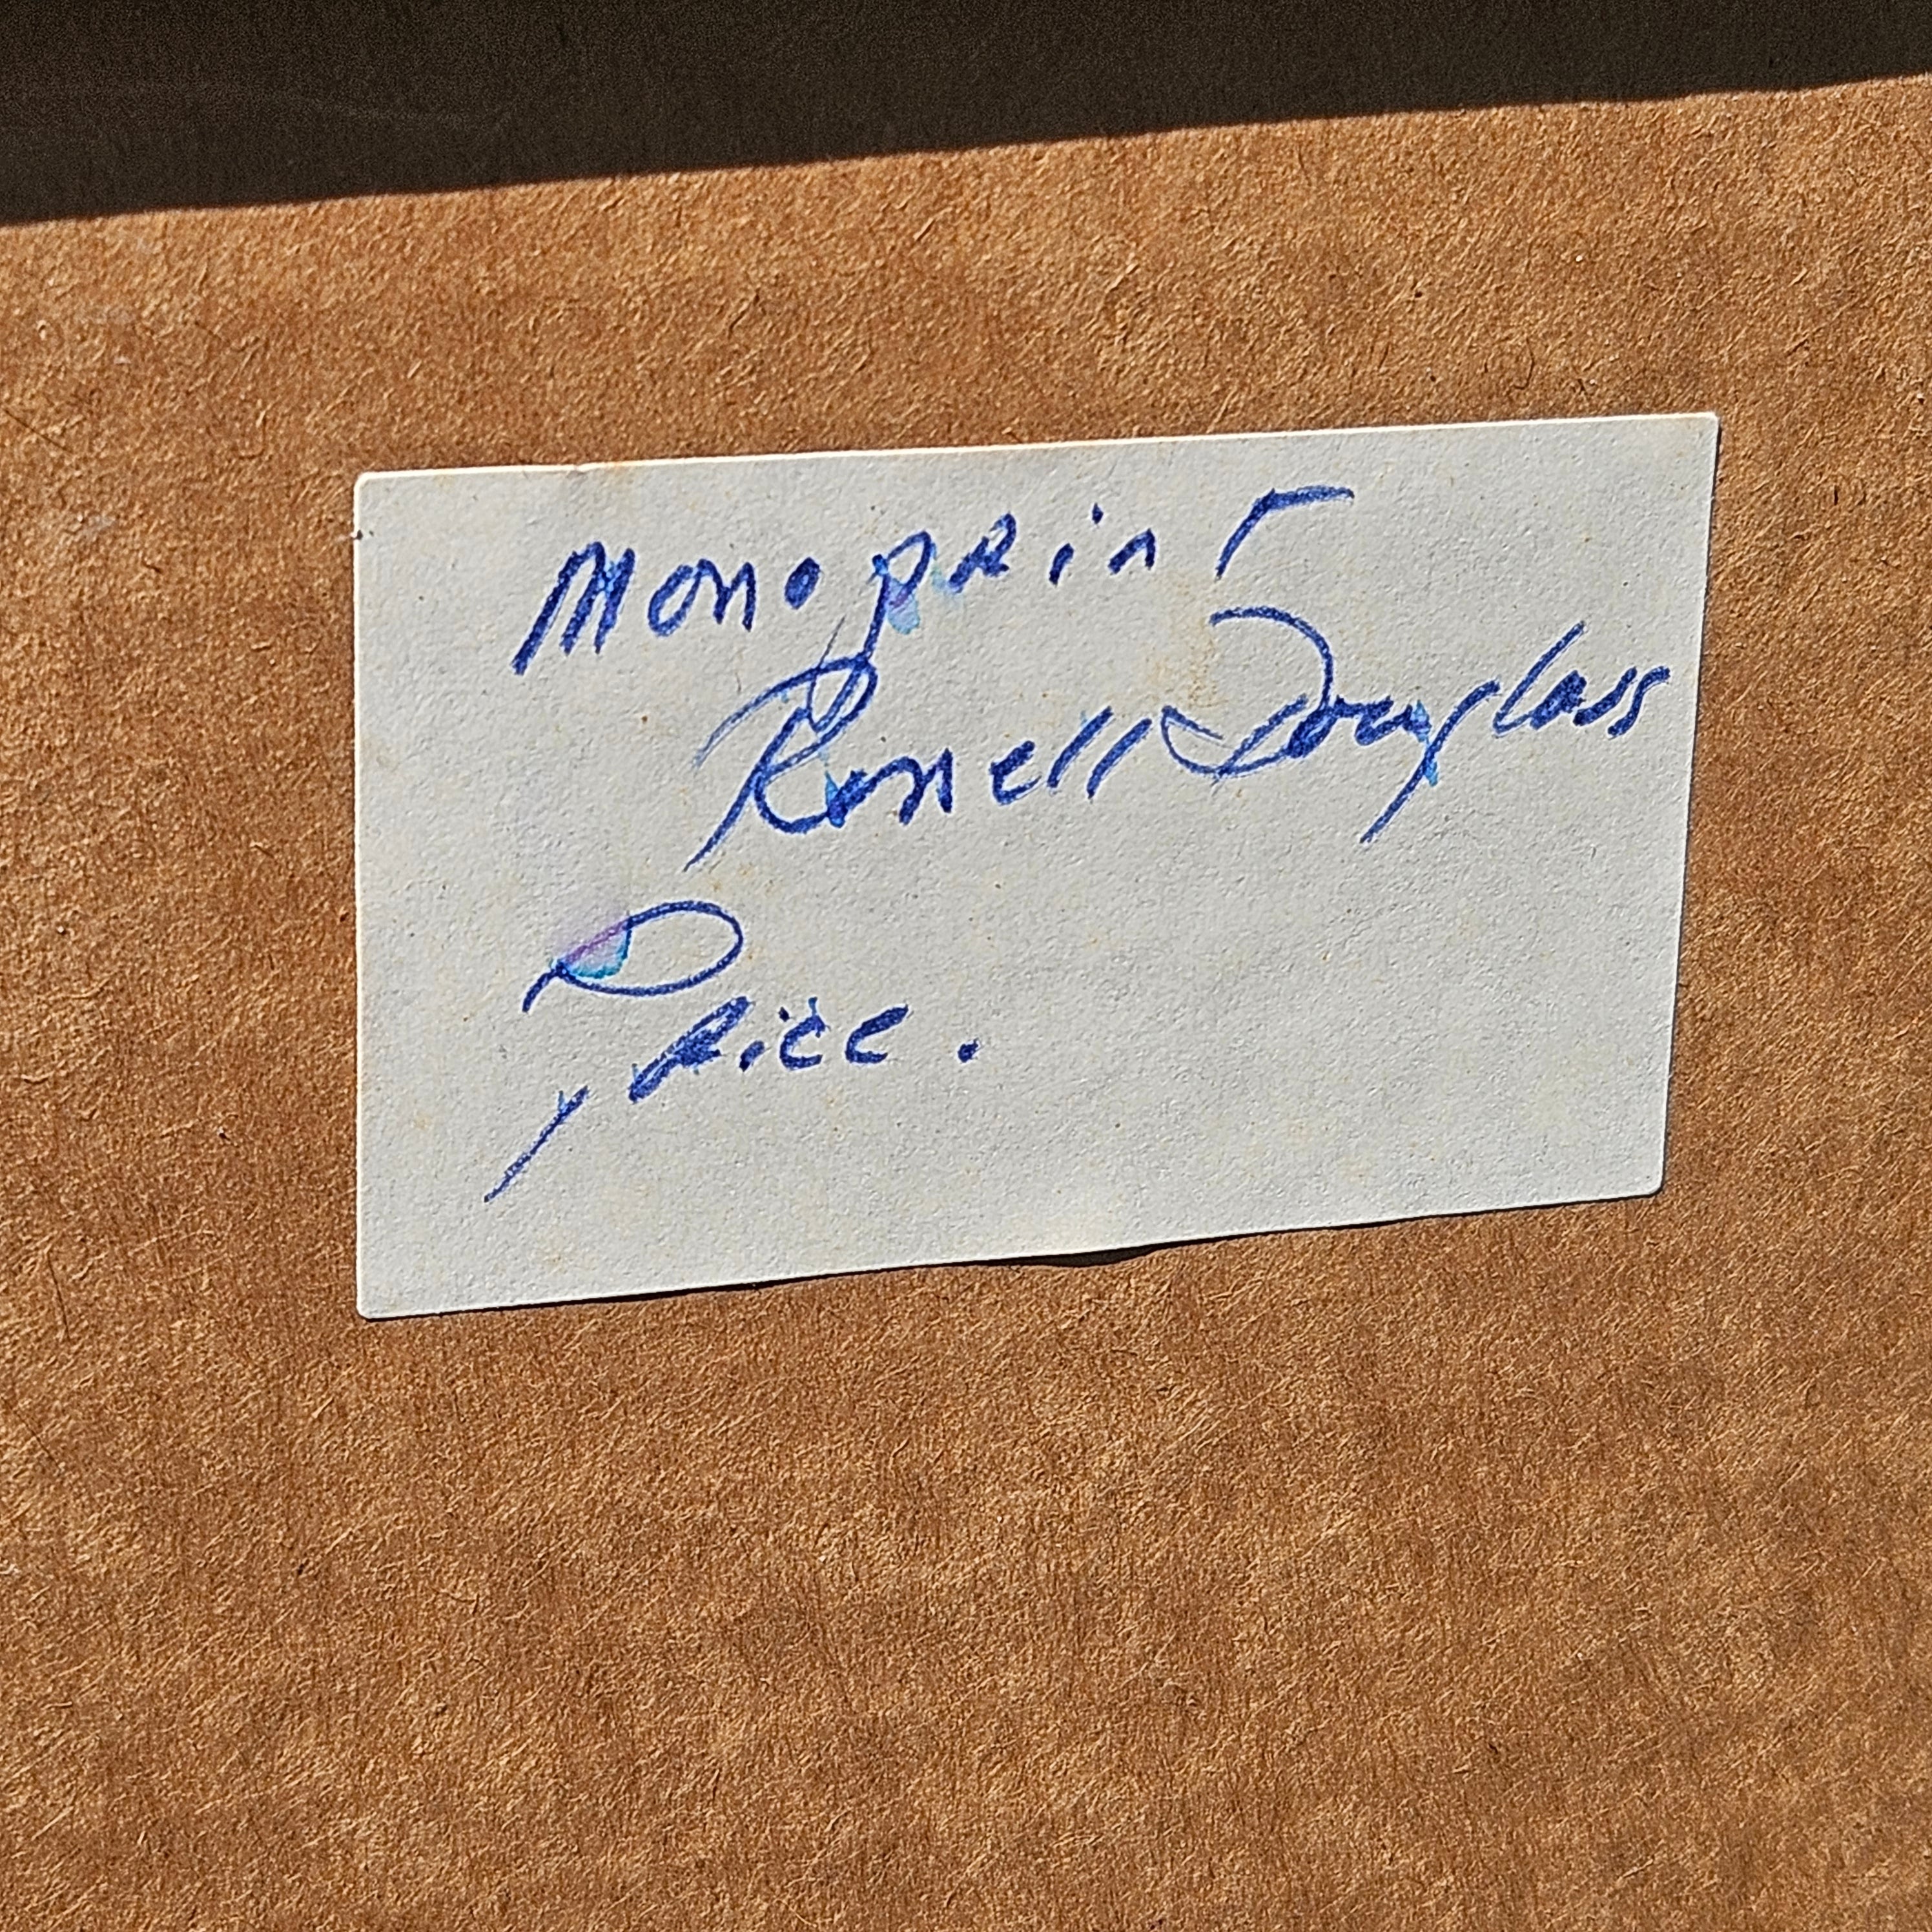 Monoprint
Russell Douglass
Price.